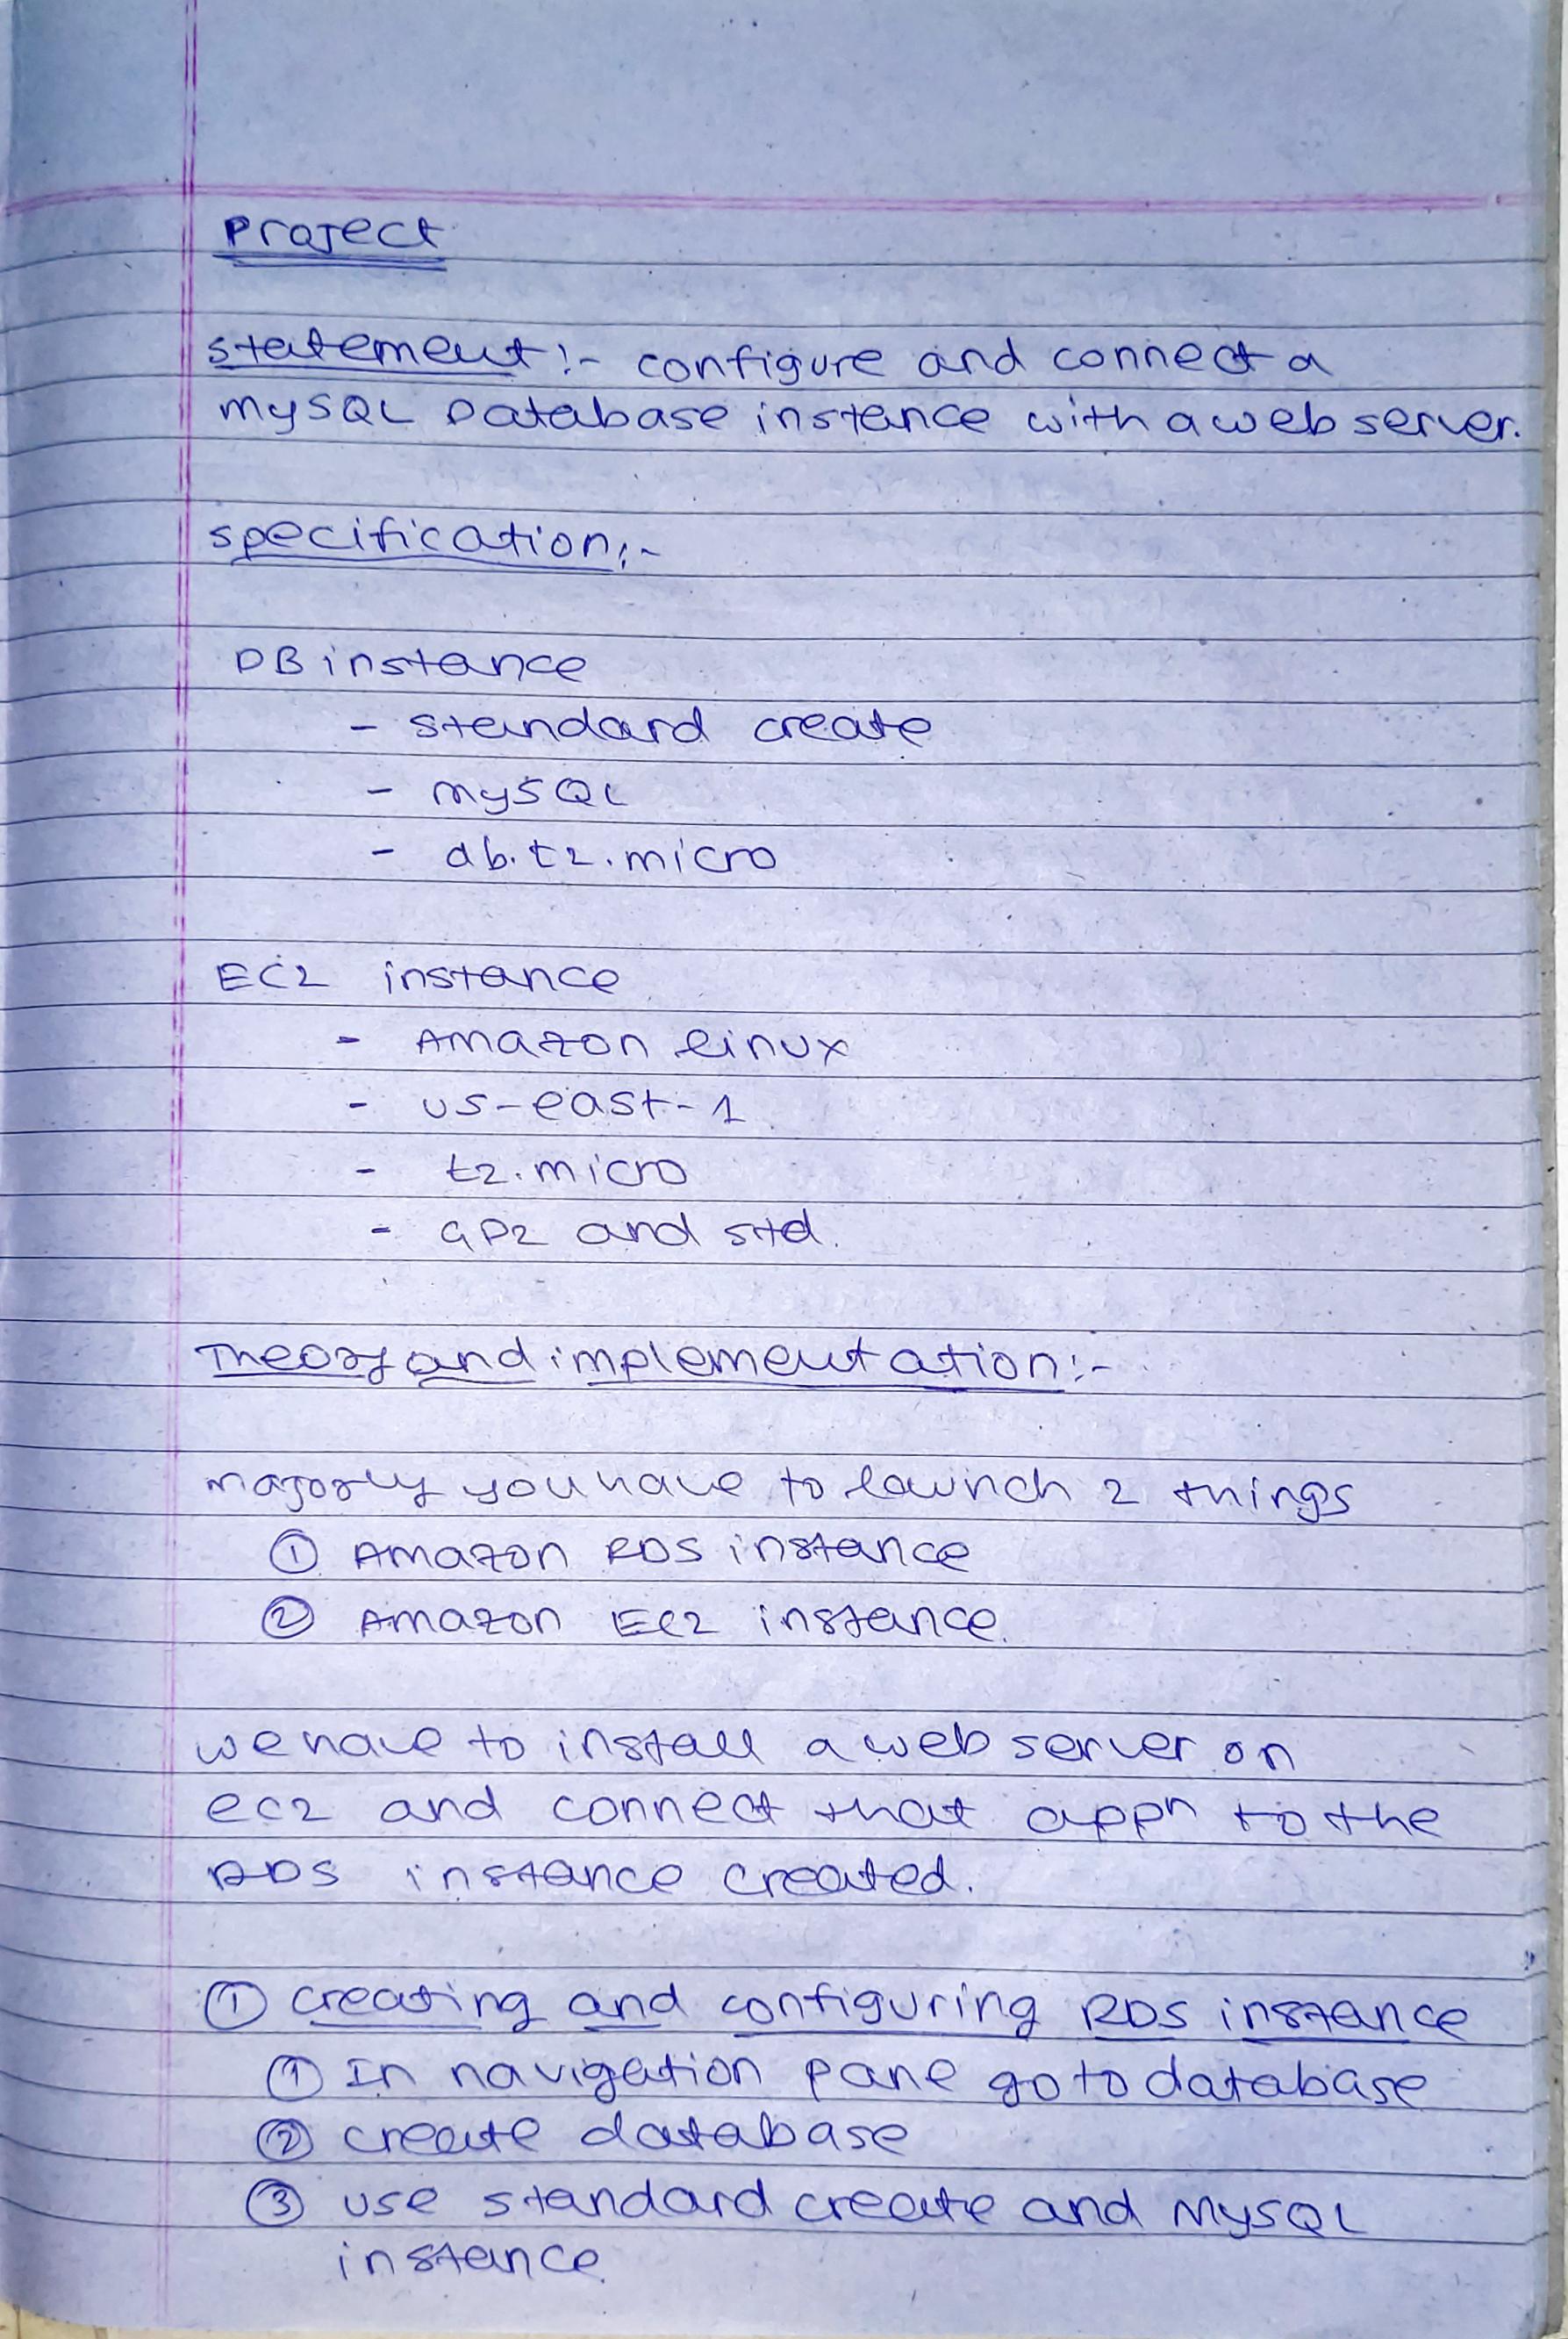 Project
statement :- configure and connect a
MySQL Database instance with a web server.
specification :-
DB instance
- standard create
- MySQL
- db.t2.micro
EC2 instance
- Amazon linux
- us-east-1
- t2.micro
- GP2 and std.
Theory and implementation :-
Majorly you have to launch 2 things
① Amazon RDS instance
② Amazon EC2 instance.
we have to install a web server on
ec2 and connect that appⁿ to the
RDS instance created.
① creating and configuring RDS instance
① In navigation pane go to database
② create database
③ use standard create and MySQL
instance.